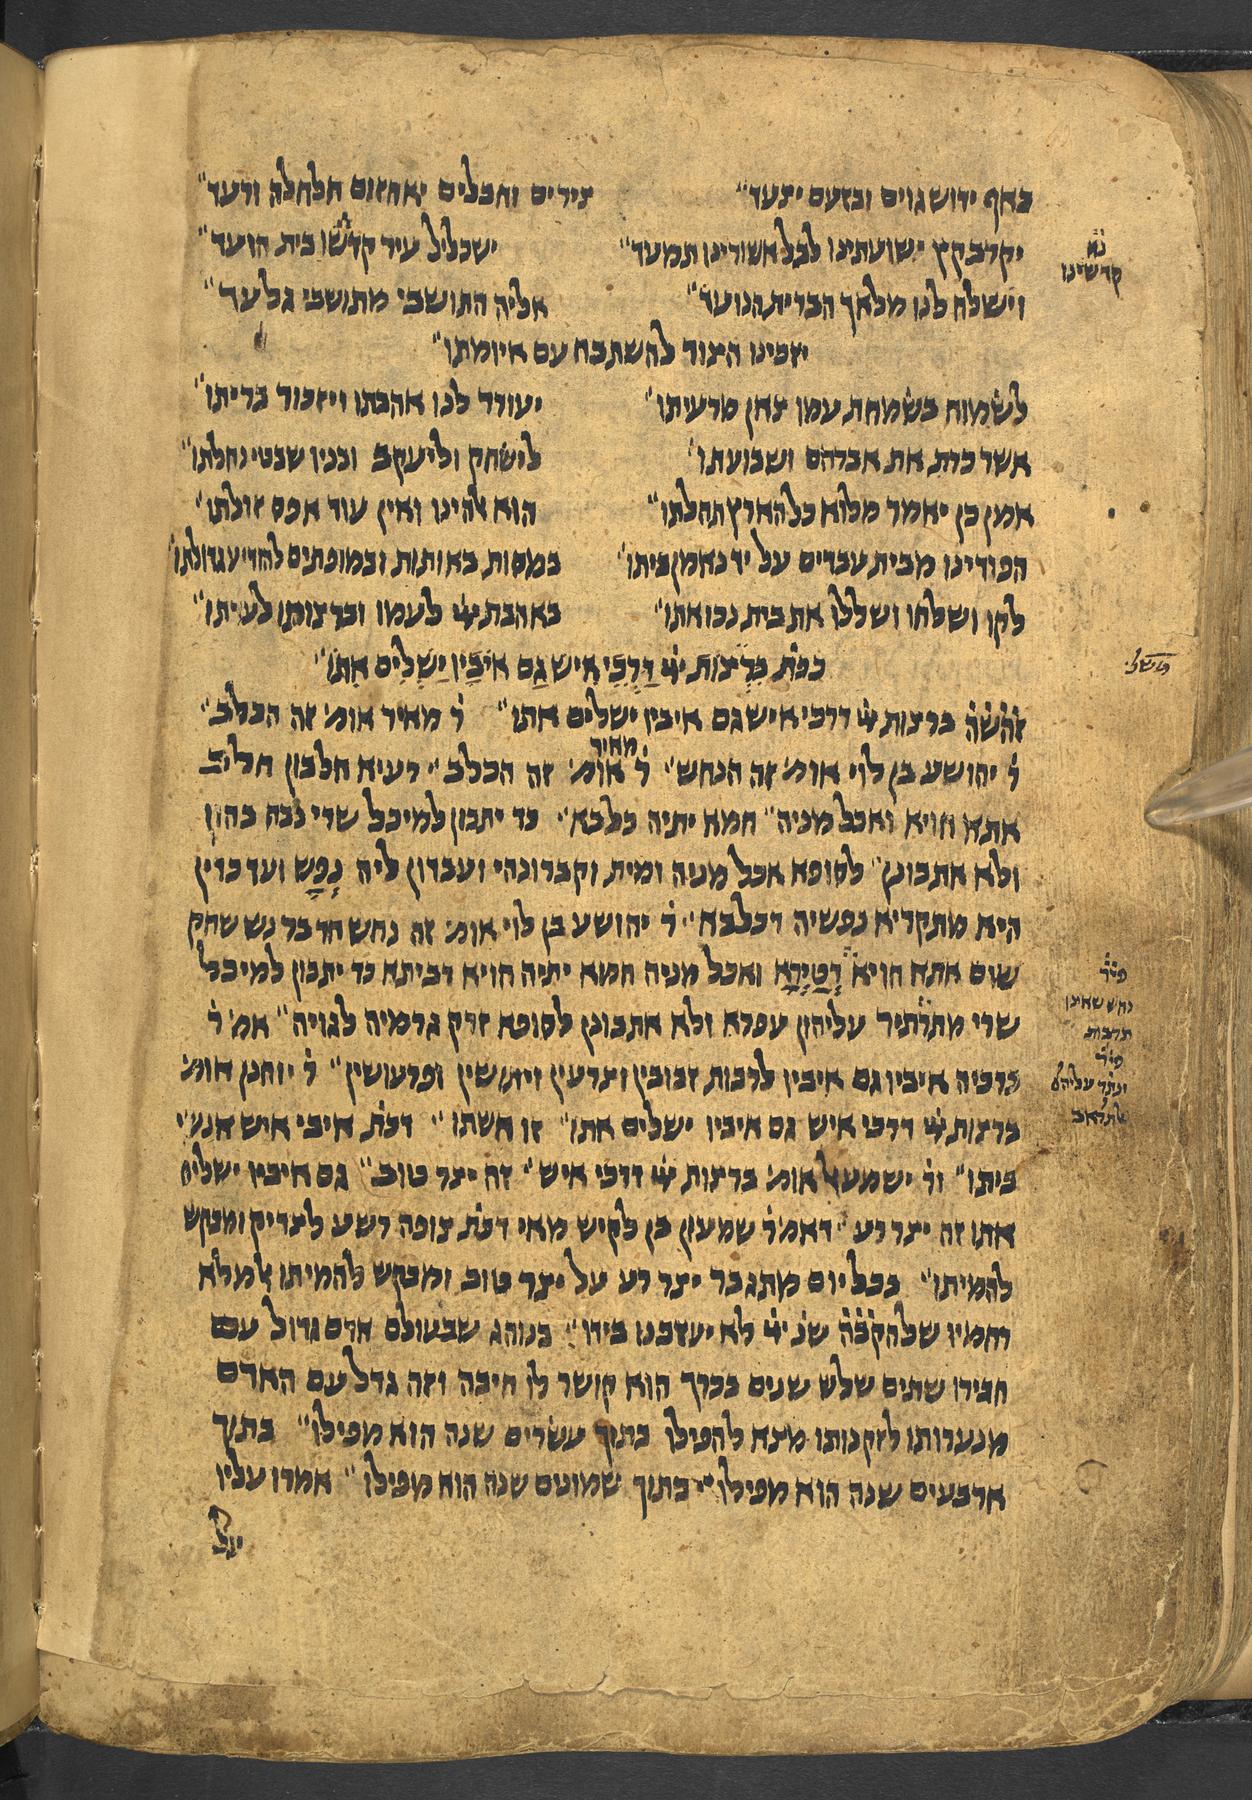 באף ידוש גוים ובזעם יצעד״ צירים וחבלים יאחזום חלחלה ורעד״
יקרב קץ ישועתינו לבל אשורינו תמעד״ ישכליל עיר קדשו בית הועד״
נ״א
קדשינו
וישלח לנו מלאך הברית הנועד״ אליה התושבי מתושבי גלעד״
יזכינו הצור להשתבח עם איומתו״
לשמוח בשמחת עמו צאן מרעיתו״ יעורר לנו אהבתו ויזכור בריתו״
אשר כרת את אברהם ושבועתו׳ לישחק וליעקב ובניו שבטי נחלתו״
אמן כן יאמר מלוא כל הארץ תהלתו״ הוא אלהינו ואין עוד אפס זולתו״
הפודינו מבית עבדים על יד נאמן ביתו׳ במסות באותות ובמופתים להודיע גדולתו׳
לקו ושלחו ושללו את בית נכואתו״ באהבת ייי לעמו וברצותו לעיתו״
ככת׳ ברצות ייי דרכי איש גם איביו ישלים אתו״
זהשה ברצות ייי דרכי איש גם איביו ישלים אתו״ ר׳ מאיר אומ׳ זה הכלב״
ר׳ יהושע בן לוי אומ׳ זה הנחש״ ר׳ מאיר אומ׳ זה הכלב״ רעיא חלבון חליב
אתא חויא ואכל מניה״ חמא יתיה כלבא״ כד יתבון למיכל שרי נבח בהון
ולא אתבונן״ לסופא אכל מניה ומית וקברונהי ועבדון ליה נפש ועד כדין
היא מתקריא נפשיה דכלבא״ ר׳ יהושע בן לוי אומ׳ זה נחש חד בר נש שחק
שום אתא חויא דטירא ואכל מניה חמא יתיה חויא דביתא כד יתבון למיכל
פי׳
נחש שאינו
תרבות
שרי מתרתיר עליהון עפרא ולא אתבונן לסופא זרק גרמיה לגויה״ אמ׳ ר׳
ברכיה איביו גם איביו לרבות זבובין וצרעין ויתושין ופרעושין״ ר׳ יוחנן אומ׳
ברצות ייי דרכי איש גם איביו ישלים אתו״ זו אשתו״ דכת׳ איבי איש אנשי
ביתו״ ור׳ ישמעאל אומ׳ ברצות ייי דרכי איש״ זה יצר טוב״ גם איביו ישלים
אתו זה יצר רע״ דאמ׳ ר׳ שמעון בן לקיש מאי דכת׳ צופה רשע לצדיק ומבקש
להמיתו״ בכל יום מתגבר יצר רע על יצר טוב ומבקש להמיתו אלמלא
רחמיו של הק׳ב׳ה׳ שנ׳ ייי לא יעזבנו בידו״ בנוהג שבעולם אדם גדול עם
חבירו שתים שלש שנים בכרך הוא קושר לו חיבה וזה גדל עם האדם
מנערותו לזקנותו מצא להפילו בתוך עשרים שנה הוא מפילו״ בתוך
ארבעים שנה הוא מפילו״ בתוך שמונים שנה הוא מפילו״ אמרו עליו